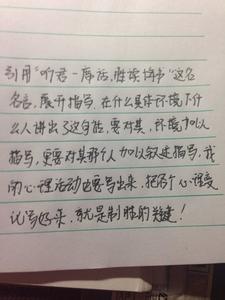 引用“听君一席话,胜读十年书”这名
名言,展开描写,在什么具体环境下什
么人讲出了这句话,要对其,环境加以
描写,更要对其那个人加以叙述描写,我
的心理活动也要写出来,把各个心理变
化写好来,就是制胜的关键!